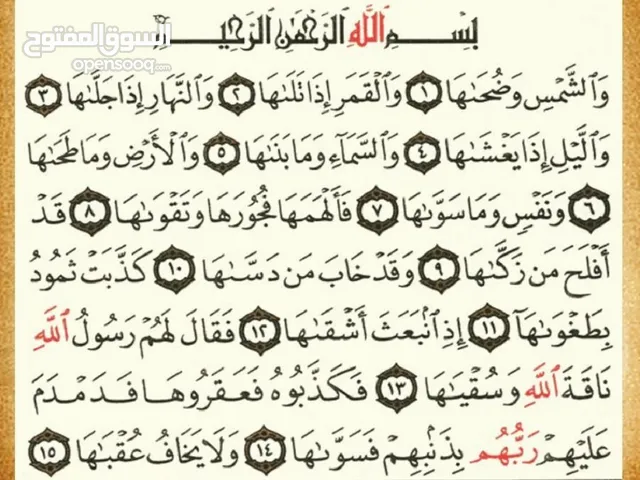 السوق المفتوح
opensooq.com
بِسْمِ اللَّهِ الرَّحْمَٰنِ الرَّحِيمِ
وَالشَّمْسِ وَضُحَىٰهَا ١ وَالْقَمَرِ إِذَا تَلَىٰهَا ٢ وَالنَّهَارِ إِذَا جَلَّىٰهَا ٣
وَالَّيْلِ إِذَا يَغْشَىٰهَا ٤ وَالسَّمَآءِ وَمَا بَنَىٰهَا ٥ وَالْأَرْضِ وَمَا طَحَىٰهَا
٦ وَنَفْسٍ وَمَا سَوَّىٰهَا ٧ فَأَلْهَمَهَا فُجُورَهَا وَتَقْوَىٰهَا ٨ قَدْ
أَفْلَحَ مَن زَكَّىٰهَا ٩ وَقَدْ خَابَ مَن دَسَّىٰهَا ١٠ كَذَّبَتْ ثَمُودُ
بِطَغْوَىٰهَآ ١١ إِذِ انۢبَعَثَ أَشْقَىٰهَا ١٢ فَقَالَ لَهُمْ رَسُولُ اللَّهِ
نَاقَةَ اللَّهِ وَسُقْيَٰهَا ١٣ فَكَذَّبُوهُ فَعَقَرُوهَا فَدَمْدَمَ
عَلَيْهِمْ رَبُّهُم بِذَنۢبِهِمْ فَسَوَّىٰهَا ١٤ وَلَا يَخَافُ عُقْبَٰهَا ١٥